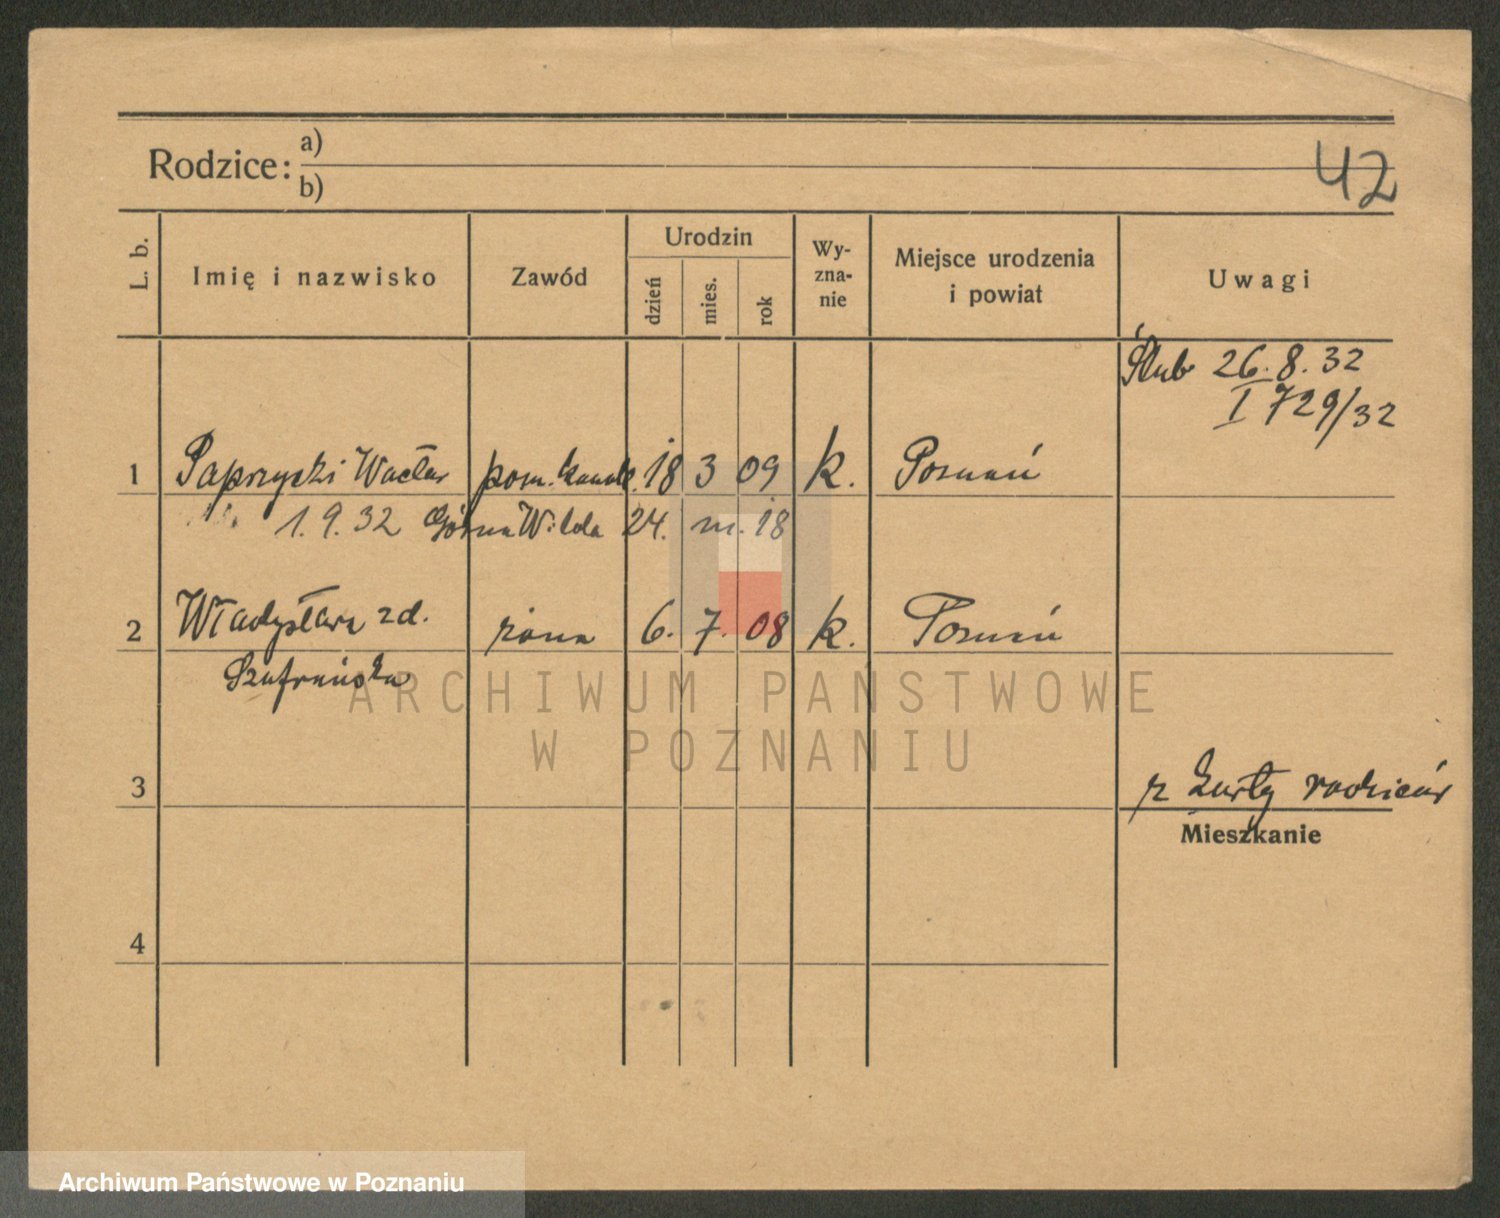 42
Rodzice: a)
b)
L. b. Imię i nazwisko Zawód Urodzin dzień mies. rok Wy-zna-nie Miejsce urodzenia i powiat Uwagi
Ślub 26.8.32
I 729/32
1 Paprzycki Wacław pom. 18 3 09 k. Poznań
1.9.32 Górna Wilda 24. m. 18
2 Władysława zd. żona 6. 7. 08 k. Poznań
Szafrańska
ARCHIWUM PAŃSTWOWE
W POZNANIU
3 z karty rodziców
Mieszkanie
4
Archiwum Państwowe w Poznaniu